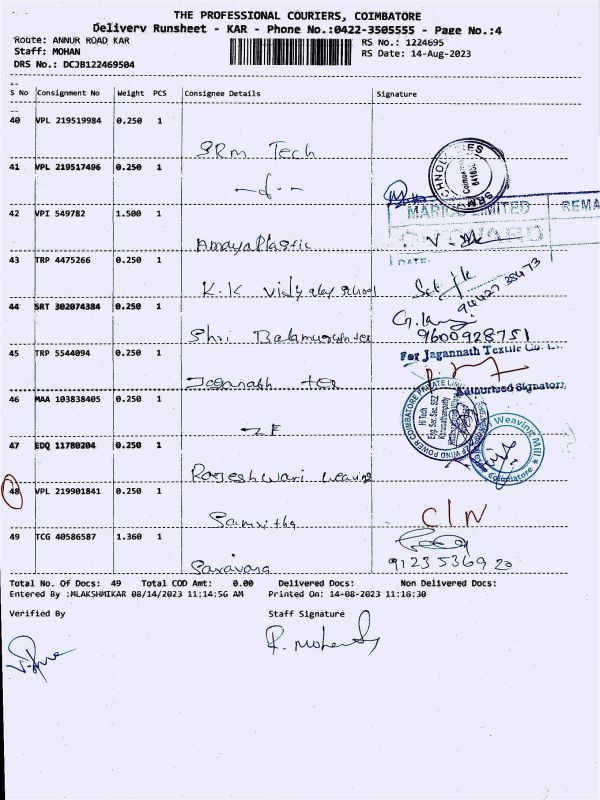 THE PROFESSIONAL COURIERS, COIMBATORE
Delivery Runsheet - KAR - Phone No.:0422-3505555 - Page No.:4
Route: ANNUR ROAD KAR RS No.: 1224695
Staff: MOHAN RS Date: 14-Aug-2023
DRS No.: DCJB122469504
S No Consignment No Weight PCS Consignee Details Signature
40 VPL 219519984 0.250 1
SRM Tech
41 VPL 219517496 0.250 1
42 VPI 549782 1.500 1
MARICO LIMITED REMA
Amaya Plastic
DATE:
43 TRP 4475266 0.250 1
K.K Vidyalay school
94427 35473
44 SRT 302074384 0.250 1
Shri
9600928751
45 TRP 5544094 0.250 1
For Jagannath Textile Co. L
Jagannath tex
Authorised Signatory
46 MAA 103838405 0.250 1
47 EDQ 11780204 0.250 1
Weaving Mill
Coimbatore
Rajeshwari weaving
48 VPL 219901841 0.250 1
Samritha
49 TCG 40586587 1.360 1
Saravana
91235 369 20
Total No. Of Docs: 49 Total COD Amt: 0.00 Delivered Docs: Non Delivered Docs:
Entered By :MLAKSHMIKAR 08/14/2023 11:14:56 AM Printed On: 14-08-2023 11:16:30
Verified By Staff Signature